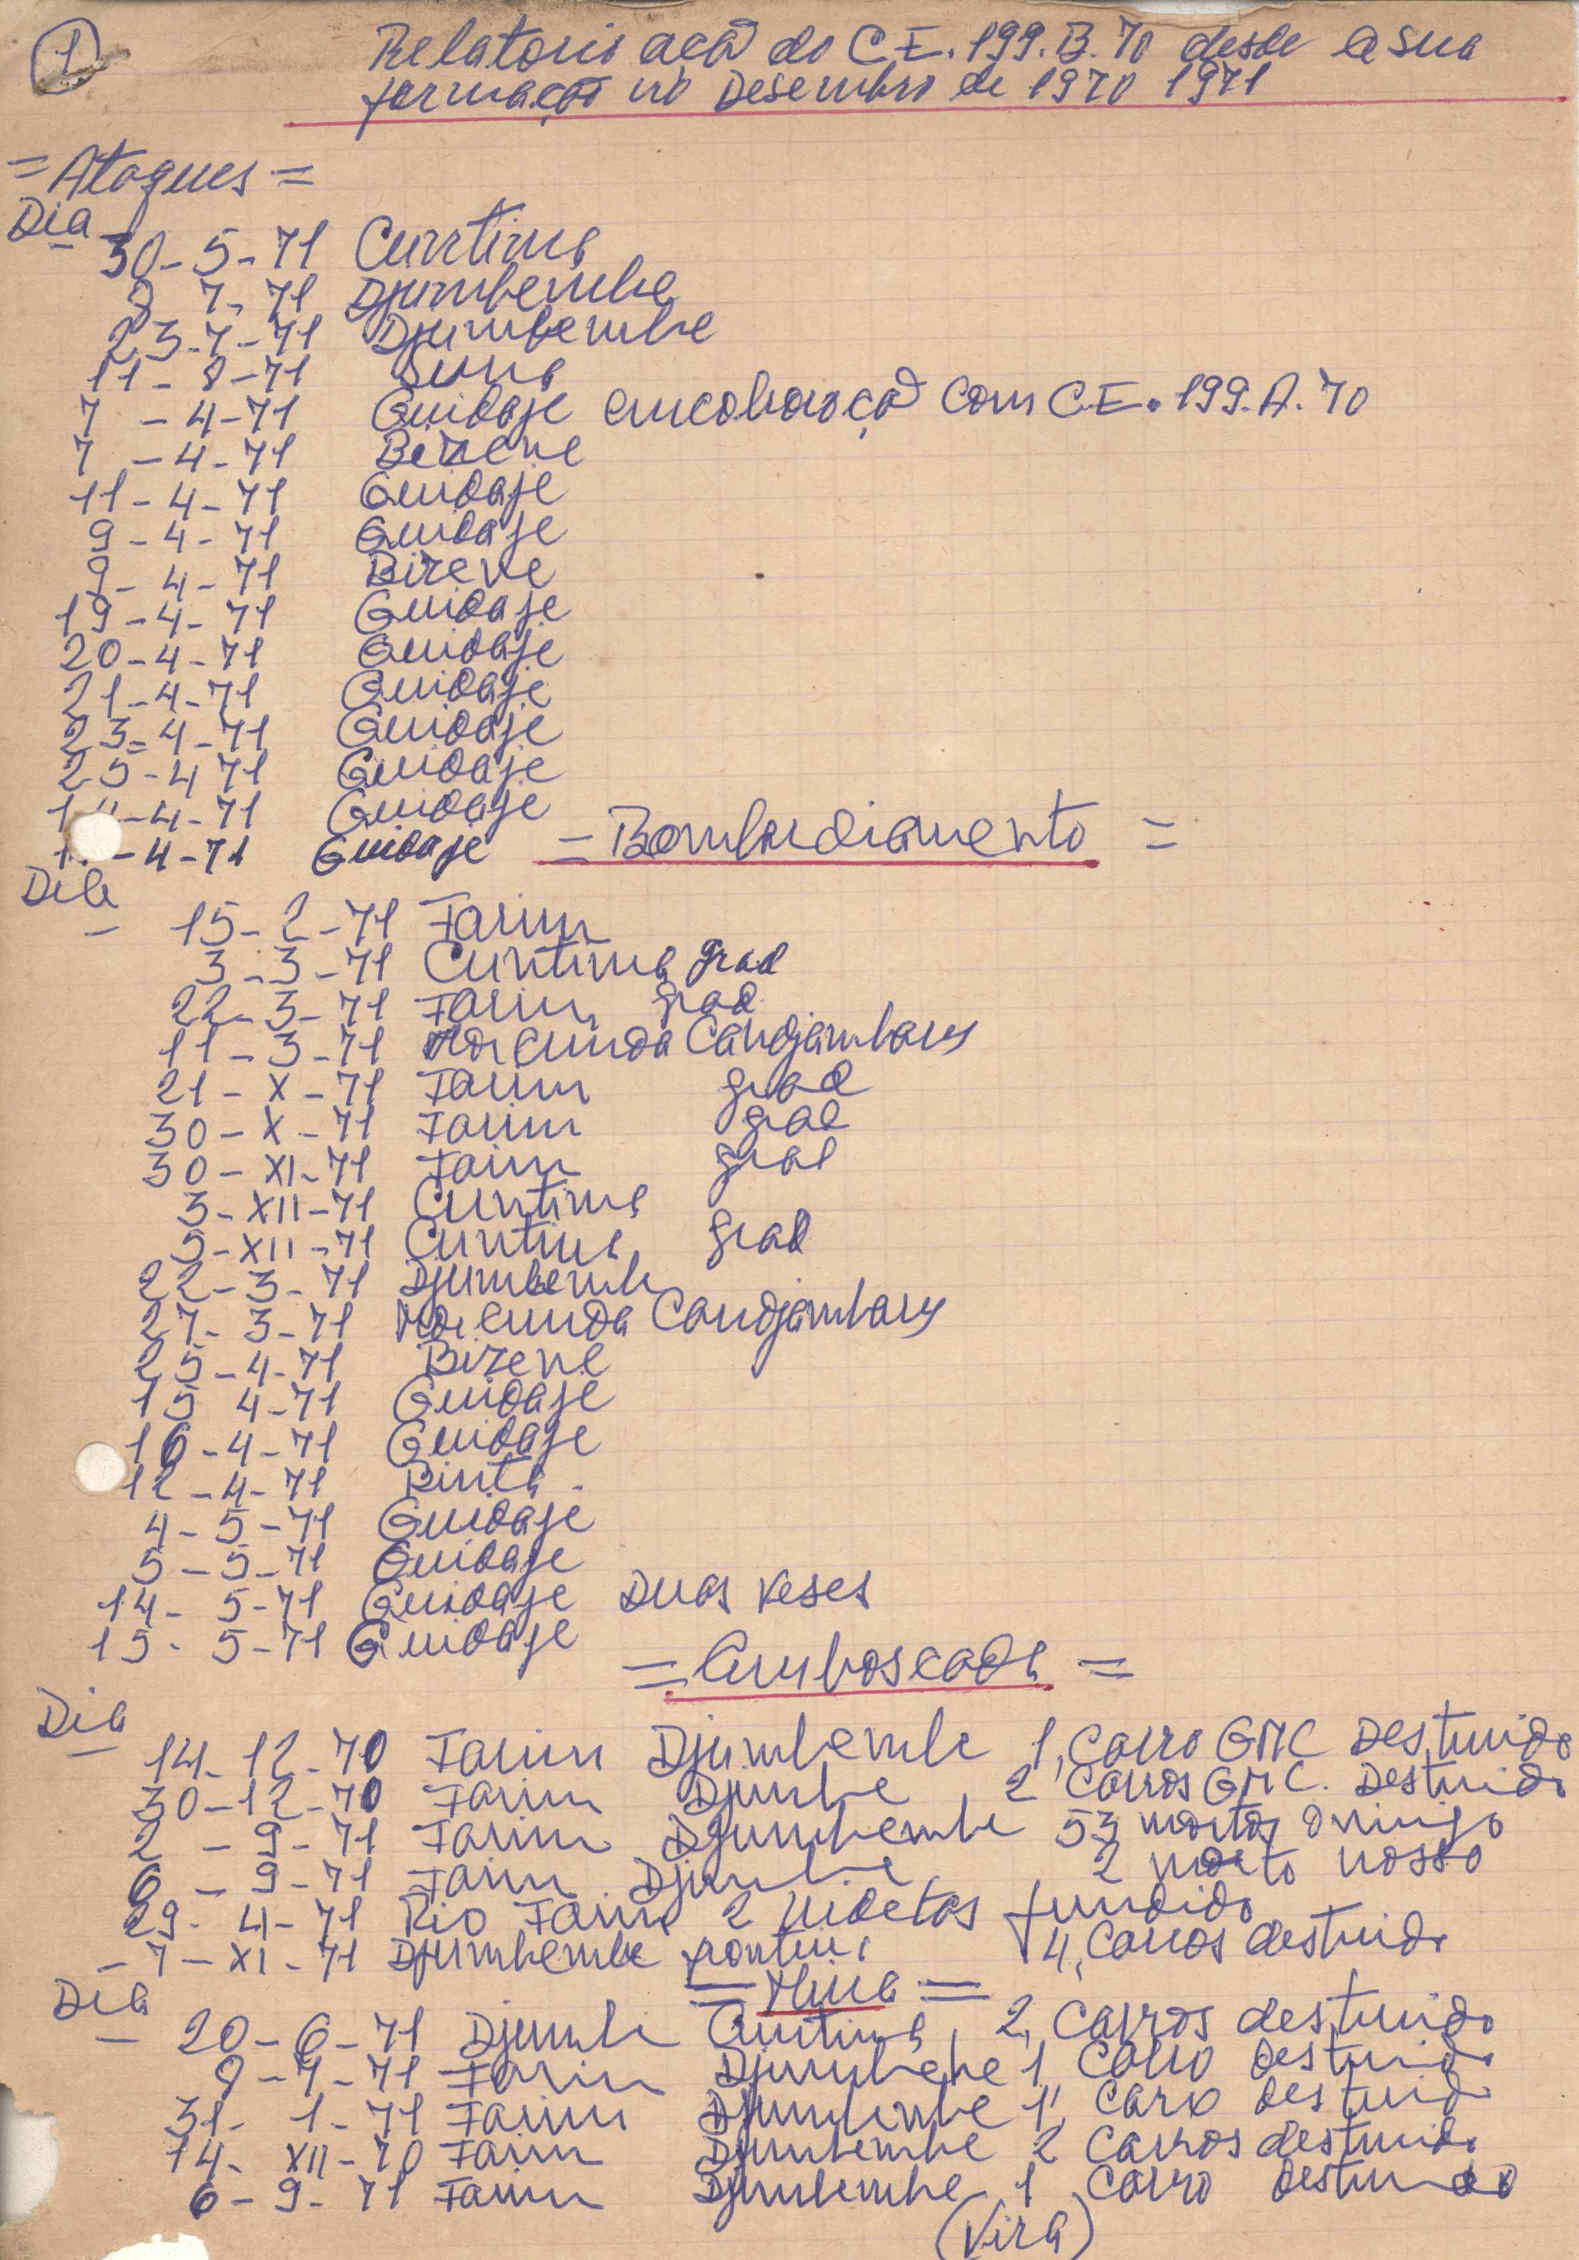 1
Relatorio acã do C.E. 199.B.70 desde a sua
formação no Desembro de 1970 1971
= Ataques =
Dia
30-5-71 Cuntima
9 7-71 Djumbembe
23-7-71 Djumbembe
11-8-71
7 -4-71 Guidaje em coboraçã com C.E. 199.A.70
7 -4-71 Birene
11-4-71 Guidaje
9-4-71 Guidaje
9-4-71 Birene
19-4-71 Guidaje
20-4-71 Guidaje
21-4-71 Guidaje
23=4-71 Guidaje
25-4 71 Guidaje
-4-71 Guidaje
-4-71 Guidaje
= Bombardiamento =
Dia
15-2-71 Farim
3-3-71 Cuntima grad
22-3-71 Farim grad
11-3-71 Morcunda Candjambary
21-X-71 Farim grad
30-X-71 Farim grad
30-XI-71 Farim grad
3-XII-71 Cuntima
5-XII-71 Cuntima grad
22-3-71 Djumbembe
27-3-71 Morcunda Candjambary
25-4-71 Birene
15 4-71 Guidaje
16-4-71 Guidaje
12-4-71 Binta
4-5-71 Guidaje
5-5-71 Guidaje
14-5-71 Guidaje Duas veses
15-5-71 Guidaje
= Emboscada =
Dia
14-12-70 Farim Djumbembe 1, Carro GMC Destruido
30-12-70 Farim Djumbe 2 Carros GMC. Destruido
2 -9-71 Farim Djumbembe 53 mortos inimigo
6 -9-71 Farim Djumbe 2 morto nosso
29-4-71 Rio Farim 2 fundido
-7-XI-71 Djumbembe 4, Carros destruido
= Mina =
Dia
20-6-71 Djumbe Cuntima, 2, Carros destruido
9-7-71 Farim Djumbembe 1, Carro destruido
31-1-71 Farim Djumbembe 1, Caro destruido
14-XII-70 Farim Djumbembe 2 Carros destruido
6-9-71 Farim Djumbembe 1 Carro destruido
(Vira)